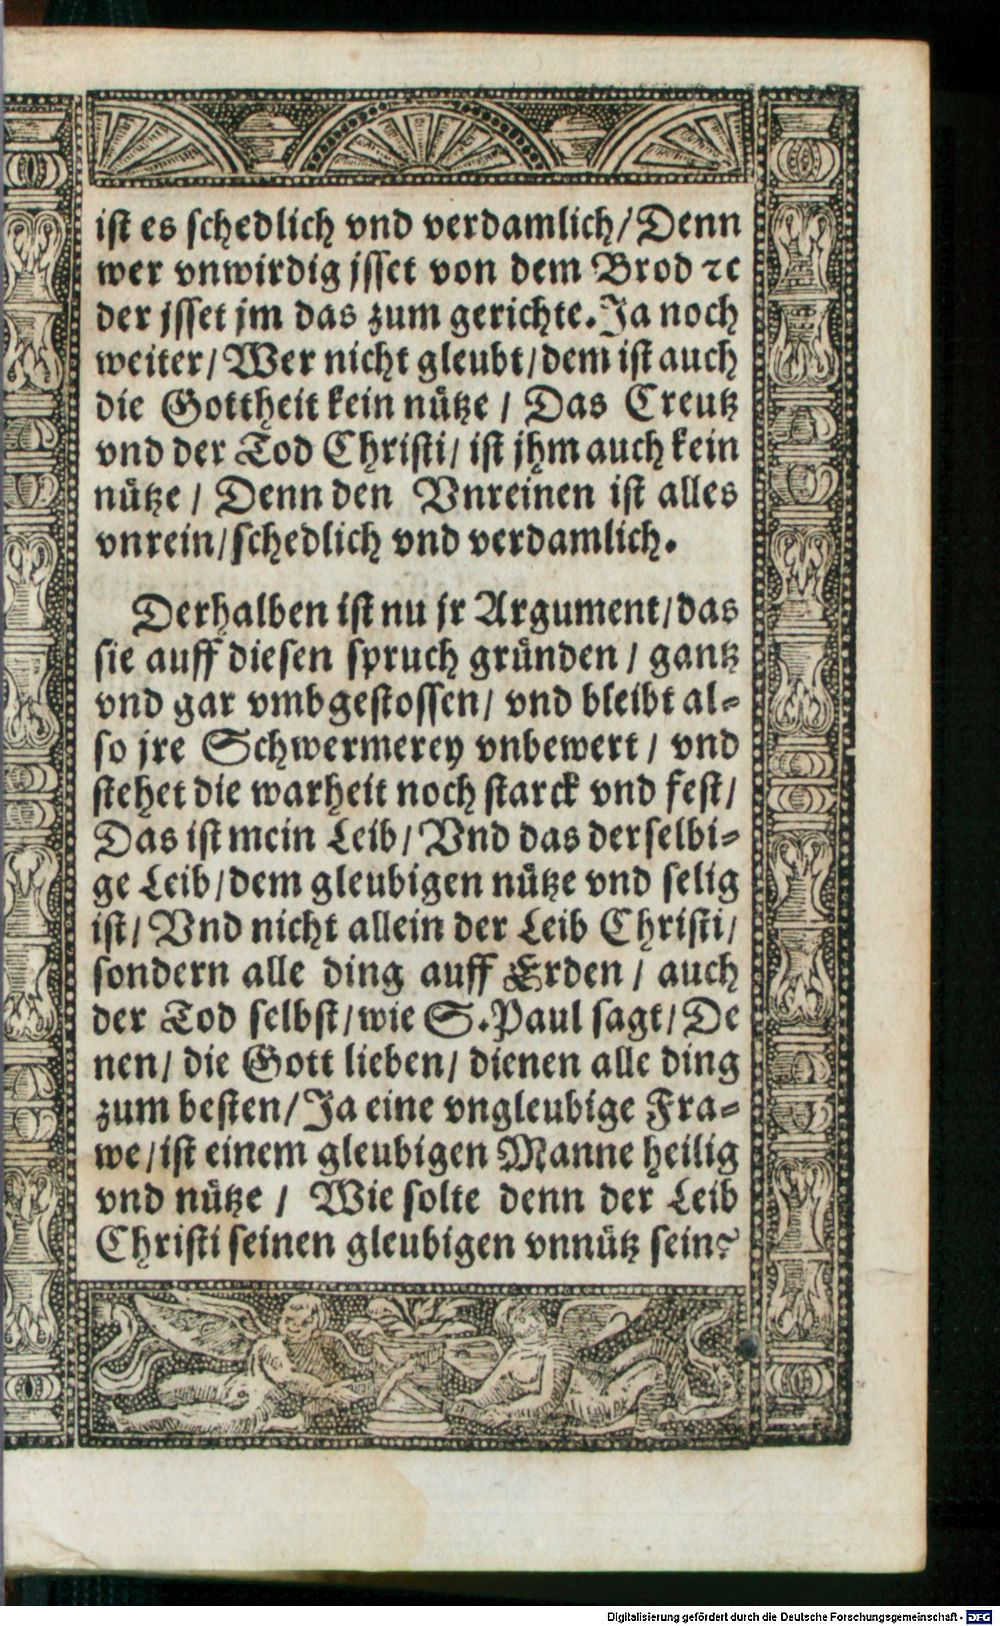 ist es schedlich vnd verdamlich/ Denn
wer vnwirdig jsset von dem Brod ⁊c
der jsset jm das zum gerichte. Ja noch
weiter/ Wer nicht gleubt/ dem ist auch
die Gottheit kein nütze / Das Creutz
vnd der Tod Christi/ ist jhm auch kein
nütze / Denn den Vnreinen ist alles
vnrein/ schedlich vnd verdamlich.
Derhalben ist nu jr Argument/ das
sie auff diesen spruch gründen / gantz
vnd gar vmbgestossen/ vnd bleibt al⸗
so jre Schwermerey vnbewert / vnd
stehet die warheit noch starck vnd fest/
Das ist mein Leib/ Vnd das derselbi⸗
ge Leib/ dem gleubigen nütze vnd selig
ist/ Vnd nicht allein der Leib Christi/
sondern alle ding auff Erden / auch
der Tod selbst/ wie S. Paul sagt/ De
nen/ die Gott lieben/ dienen alle ding
zum besten/ Ja eine vngleubige Fra⸗
we/ ist einem gleubigen Manne heilig
vnd nütze / Wie solte denn der Leib
Christi seinen gleubigen vnnütz sein?
Digitalisierung gefördert durch die Deutsche Forschungsgemeinschaft - DFG